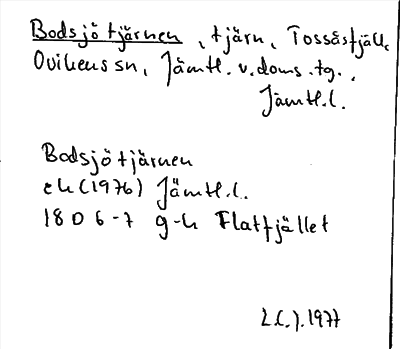 Bodsjötjärnen, tjärn, Tossåsfjäll,
Ovikens sn, Jämtl. v. doms. tg.,
Jämtl. l.
Bodsjötjärnen
ek (1976) Jämtl. l.
18 D 6-7 g-h Flatfjället
1977